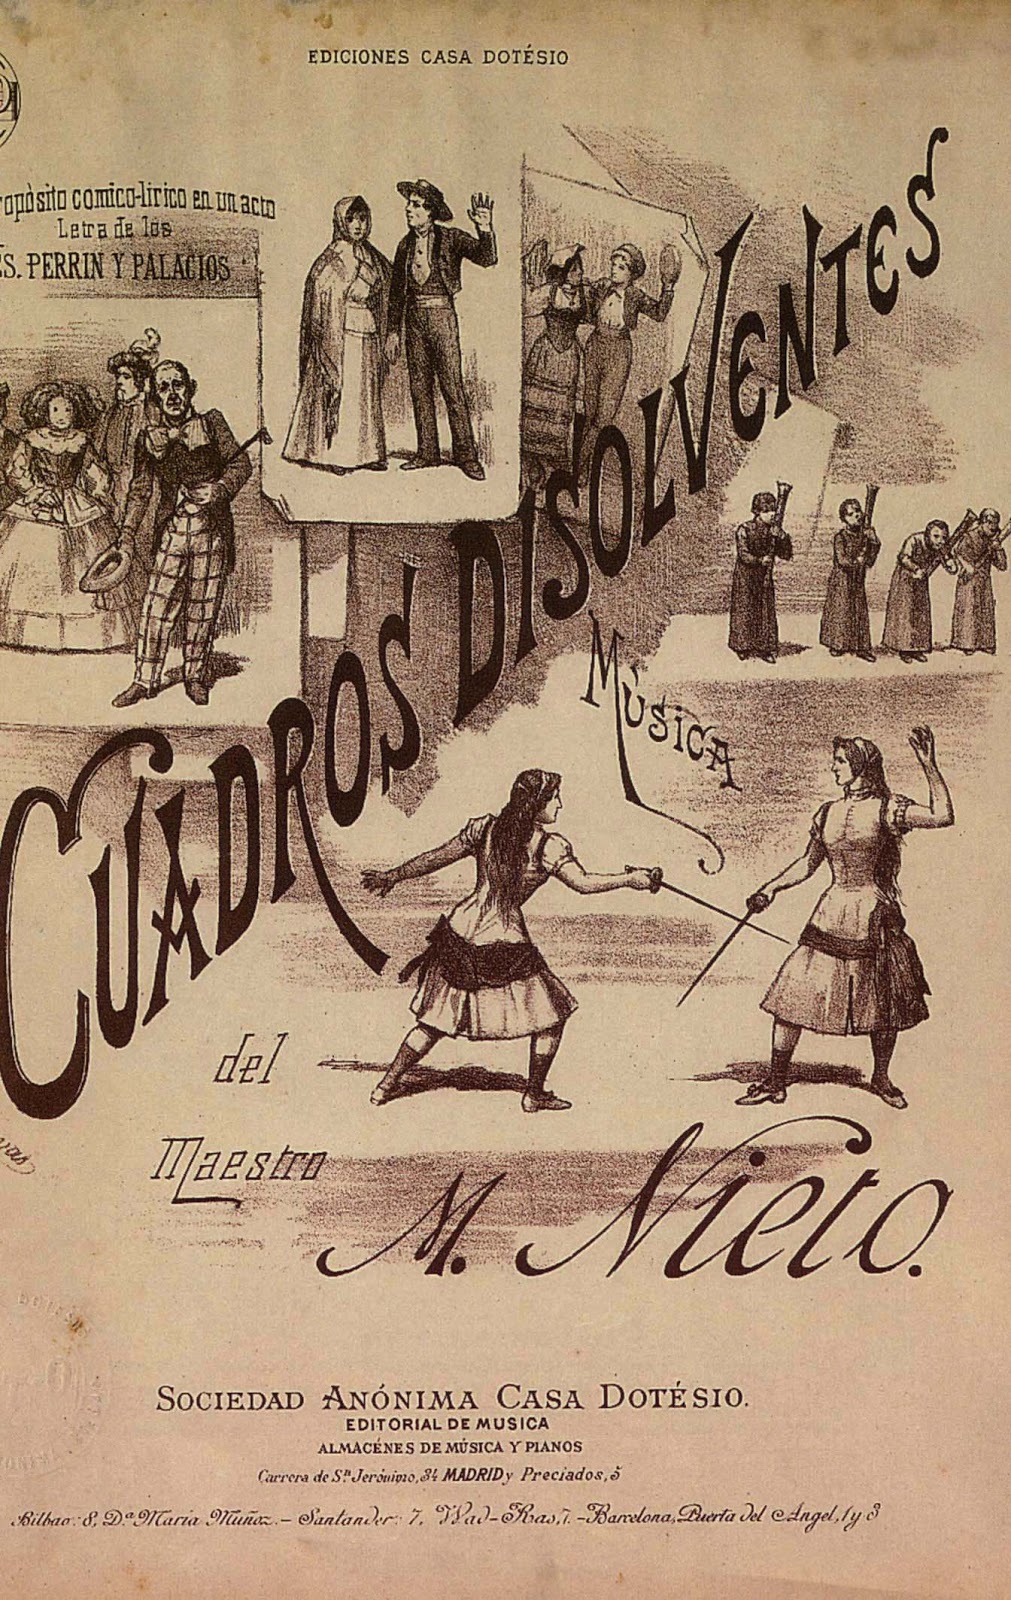 EDICIONES CASA DOTÉSIO
opòsito comico-lirico en un acto
Letra de los
S. PERRIN Y PALACIOS
CUADROS DISOLVENTES
MÚSICA
del
Maestro
M. Nieto.
SOCIEDAD ANÓNIMA CASA DOTÉSIO.
EDITORIAL DE MUSICA
ALMACÉNES DE MÚSICA Y PIANOS
Carrera de Sn Jerónimo, 34 MADRID y Preciados, 5
Bilbao: 8, Da Maria Muñoz. - Santander: 7, Wad-Ras, 7. - Barcelona, Puerta del Angel, 1 y 3